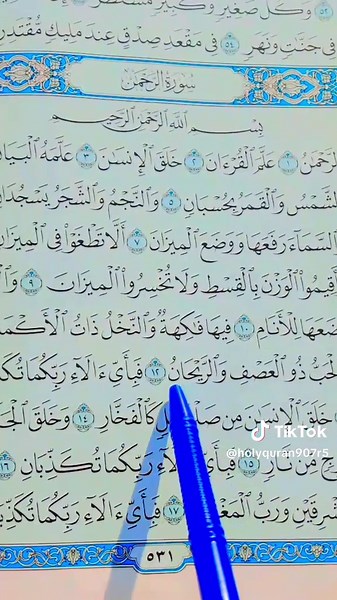 وَكُلُّ صَغِيرٍ وَكَبِيرٍ مُّسْتَطَرٌ ٥٣
فِي جَنَّٰتٍ وَنَهَرٍ ٥٤ فِي مَقْعَدِ صِدْقٍ عِندَ مَلِيكٍ مُّقْتَدِرٍ
سُورَةُ الرَّحْمَٰن
بِسْمِ ٱللَّهِ ٱلرَّحْمَٰنِ ٱلرَّحِيمِ
ٱلرَّحْمَٰنُ ١ عَلَّمَ ٱلْقُرْءَانَ ٢ خَلَقَ ٱلْإِنسَٰنَ ٣ عَلَّمَهُ ٱلْبَيَانَ
ٱلشَّمْسُ وَٱلْقَمَرُ بِحُسْبَانٍ ٥ وَٱلنَّجْمُ وَٱلشَّجَرُ يَسْجُدَانِ
ٱلسَّمَآءَ رَفَعَهَا وَوَضَعَ ٱلْمِيزَانَ ٧ أَلَّا تَطْغَوْا۟ فِي ٱلْمِيزَانِ
أَقِيمُوا۟ ٱلْوَزْنَ بِٱلْقِسْطِ وَلَا تُخْسِرُوا۟ ٱلْمِيزَانَ ٩
وَضَعَهَا لِلْأَنَامِ ١٠ فِيهَا فَٰكِهَةٌ وَٱلنَّخْلُ ذَاتُ ٱلْأَكْمَامِ
ٱلْحَبُّ ذُو ٱلْعَصْفِ وَٱلرَّيْحَانُ ١٢ فَبِأَيِّ ءَالَآءِ رَبِّكُمَا
خَلَقَ ٱلْإِنسَٰنَ مِن كَٱلْفَخَّارِ ١٤ وَخَلَقَ
مِّن نَّارٍ ١٥ فَبِأَيِّ ءَالَآءِ رَبِّكُمَا تُكَذِّبَانِ ١٦
وَرَبُّ ١٧ فَبِأَيِّ ءَالَآءِ رَبِّكُمَا
٥٣١
TikTok
@holyquran907r5